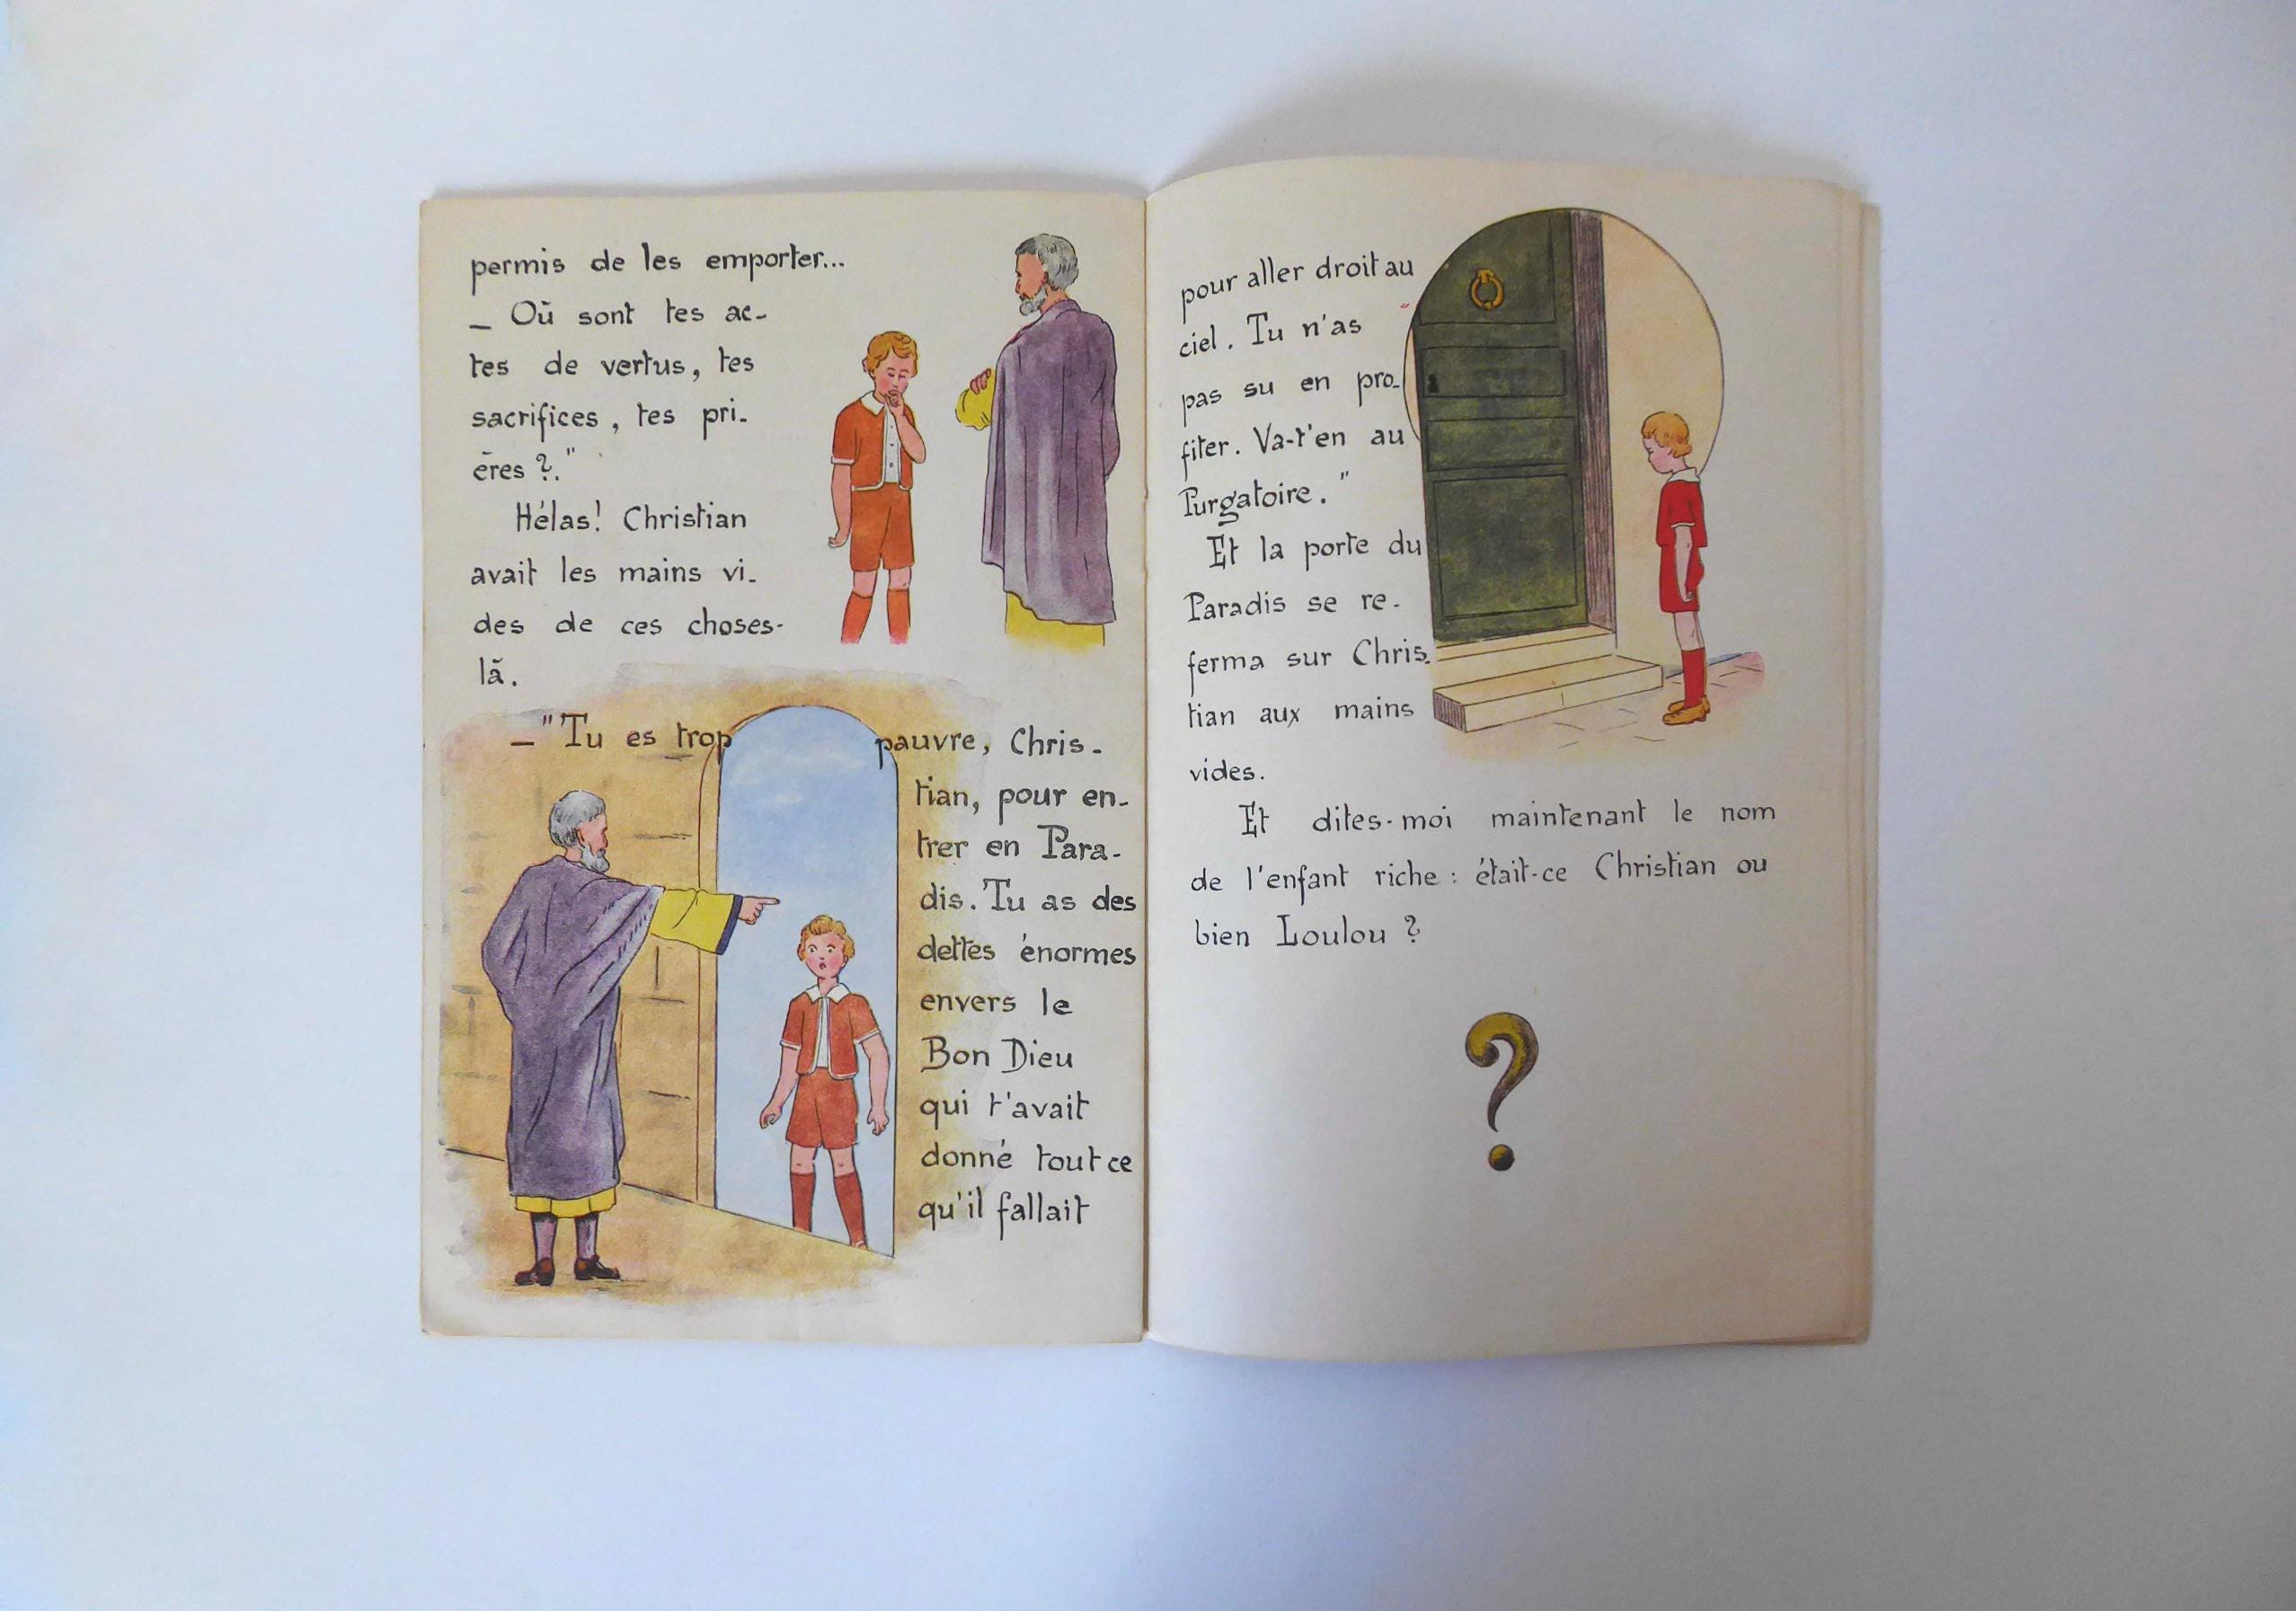 permis de les emporter...
— Où sont tes ac-
tes de vertus, tes
sacrifices, tes pri-
ères ?."
Hélas! Christian
avait les mains vi-
des de ces choses-
là.
—"Tu es trop pauvre, Chris-
tian, pour en-
trer en Para-
dis. Tu as des
dettes énormes
envers le
Bon Dieu
qui t'avait
donné tout ce
qu'il fallait
pour aller droit au
ciel. Tu n'as
pas su en pro-
fiter. Va-t'en au
Purgatoire."
Et la porte du
Paradis se re-
ferma sur Chris-
tian aux mains
vides.
Et dites-moi maintenant le nom
de l'enfant riche : était-ce Christian ou
bien Loulou ?
?